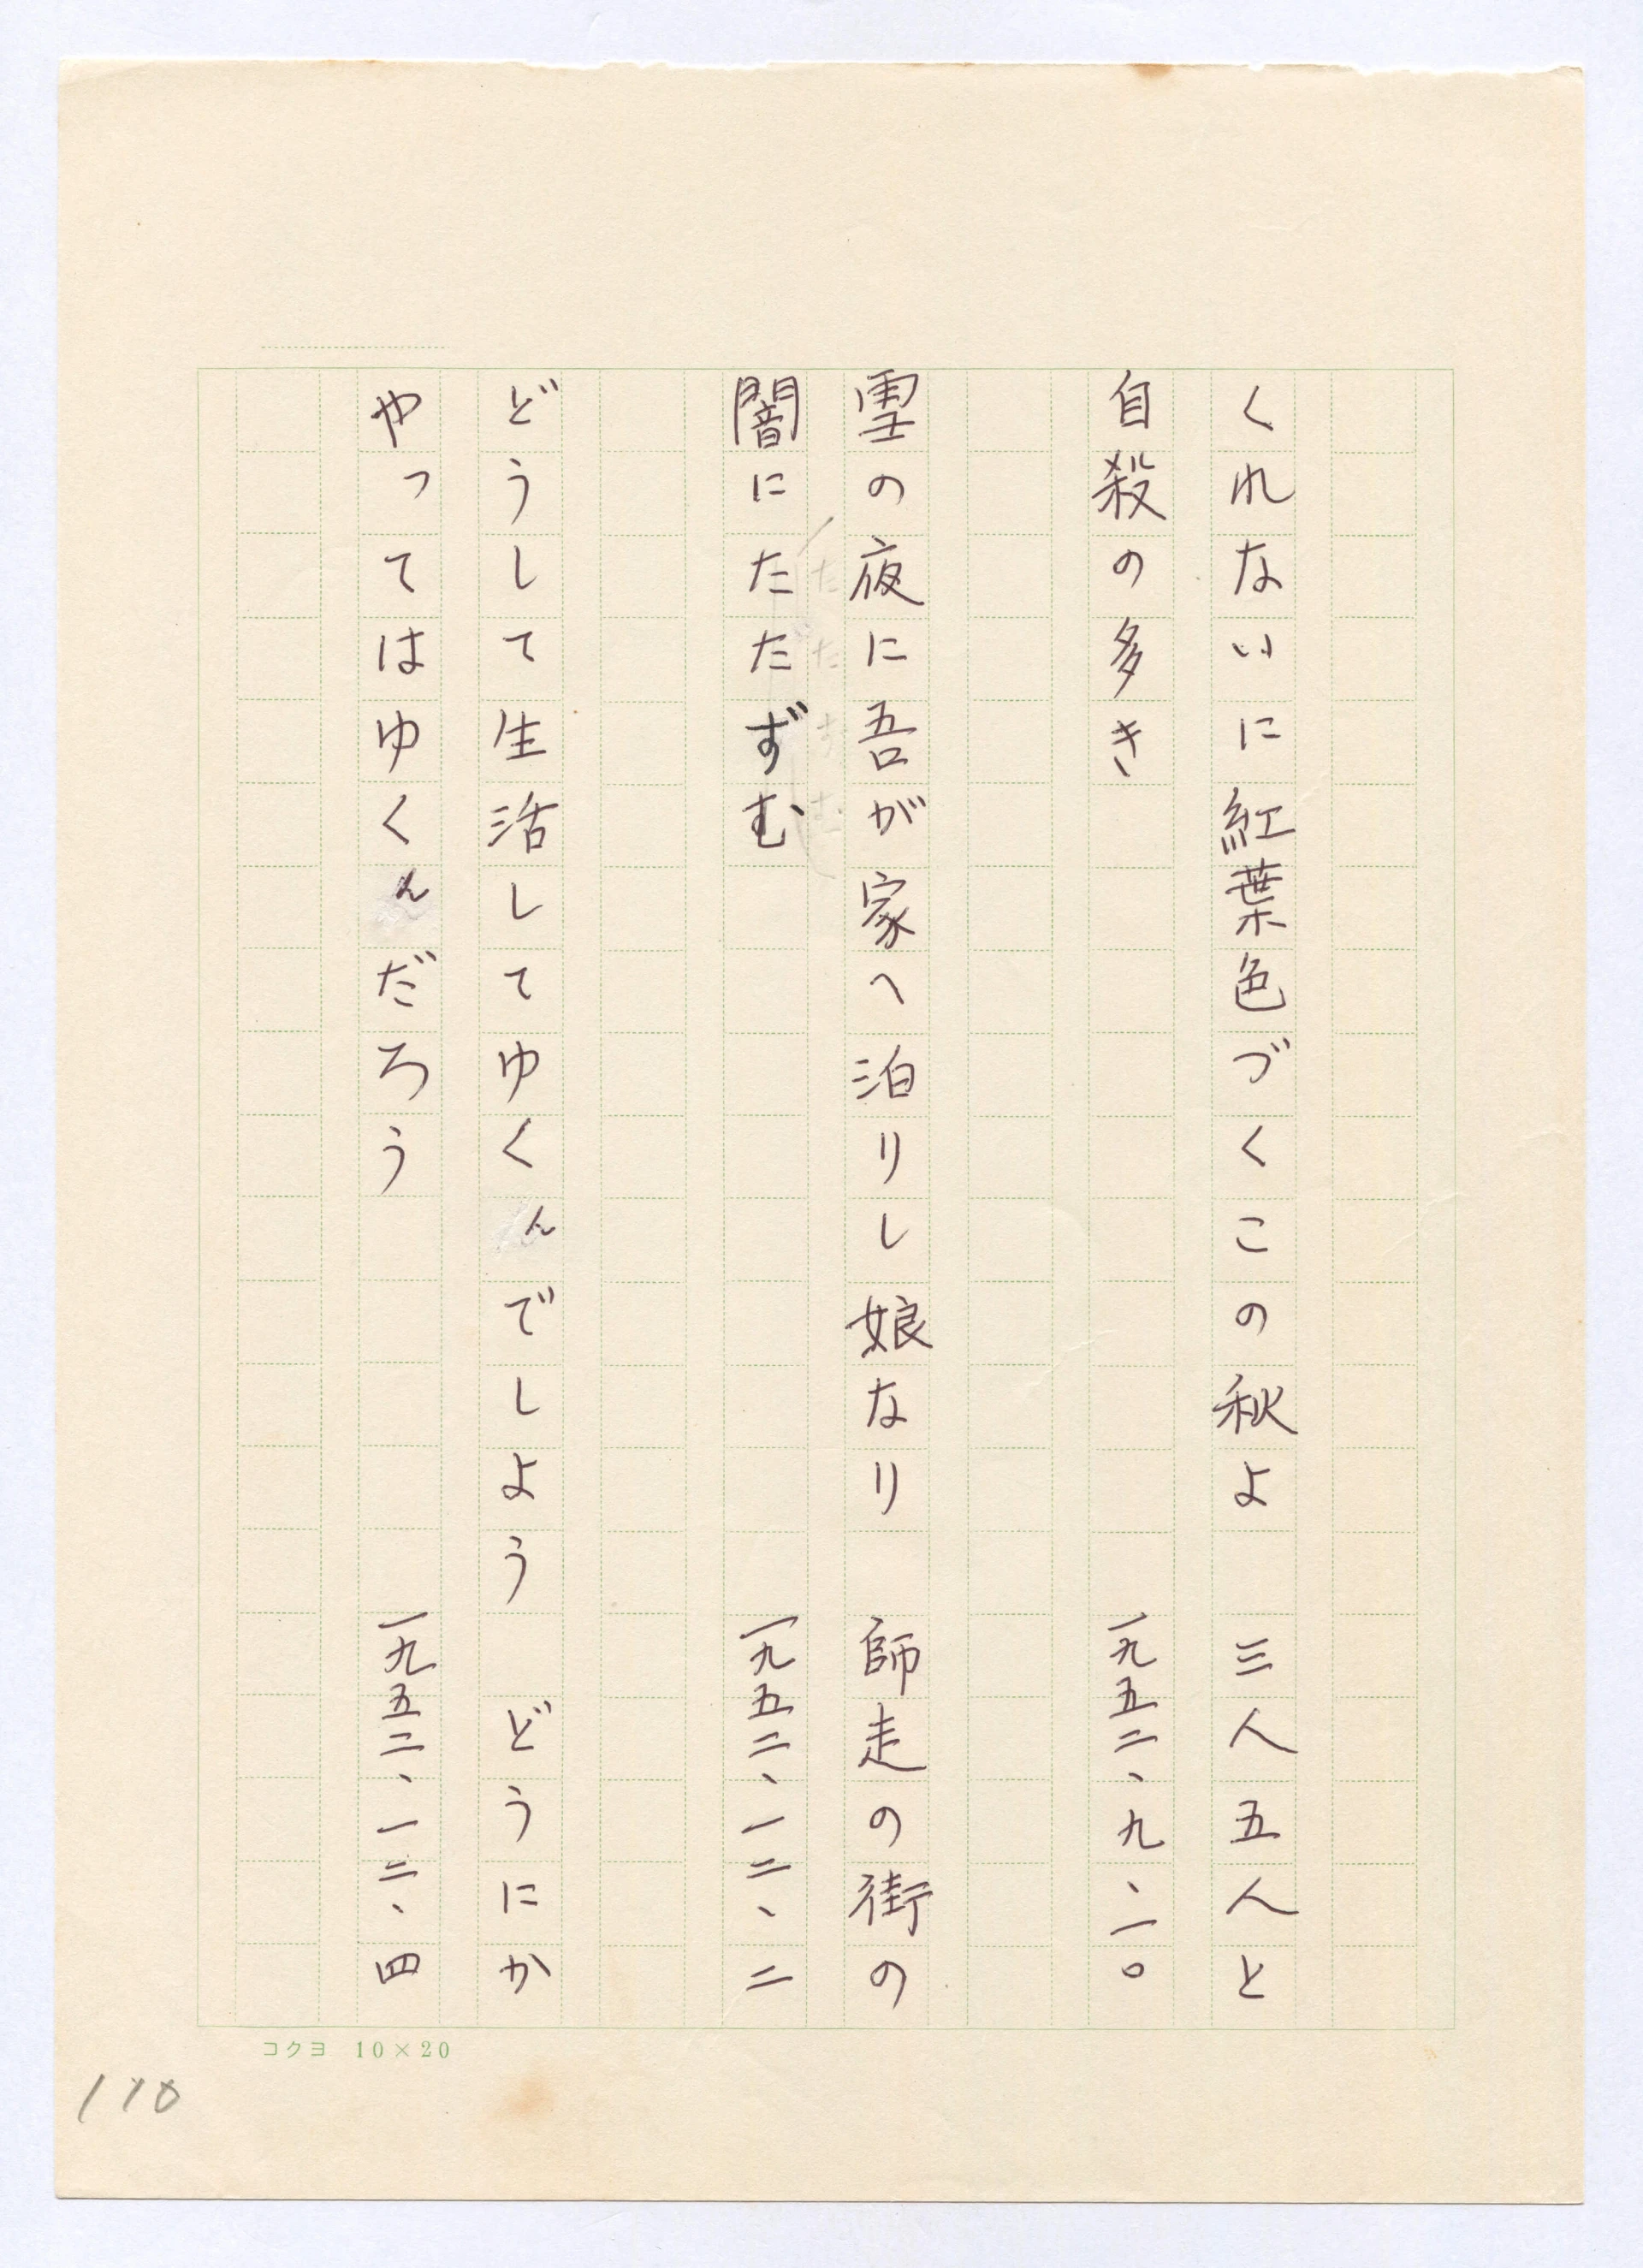 くれないに紅葉色づくこの秋よ　三人五人と
自殺の多き　一九五二、九、一〇
雪の夜に吾が家へ泊りし娘なり　師走の街の
闇にたたずむ　一九五二、一二、二
どうして生活してゆくんでしよう　どうにか
やってはゆくんだろう　一九五二、一二、四
コクヨ　10×20
110